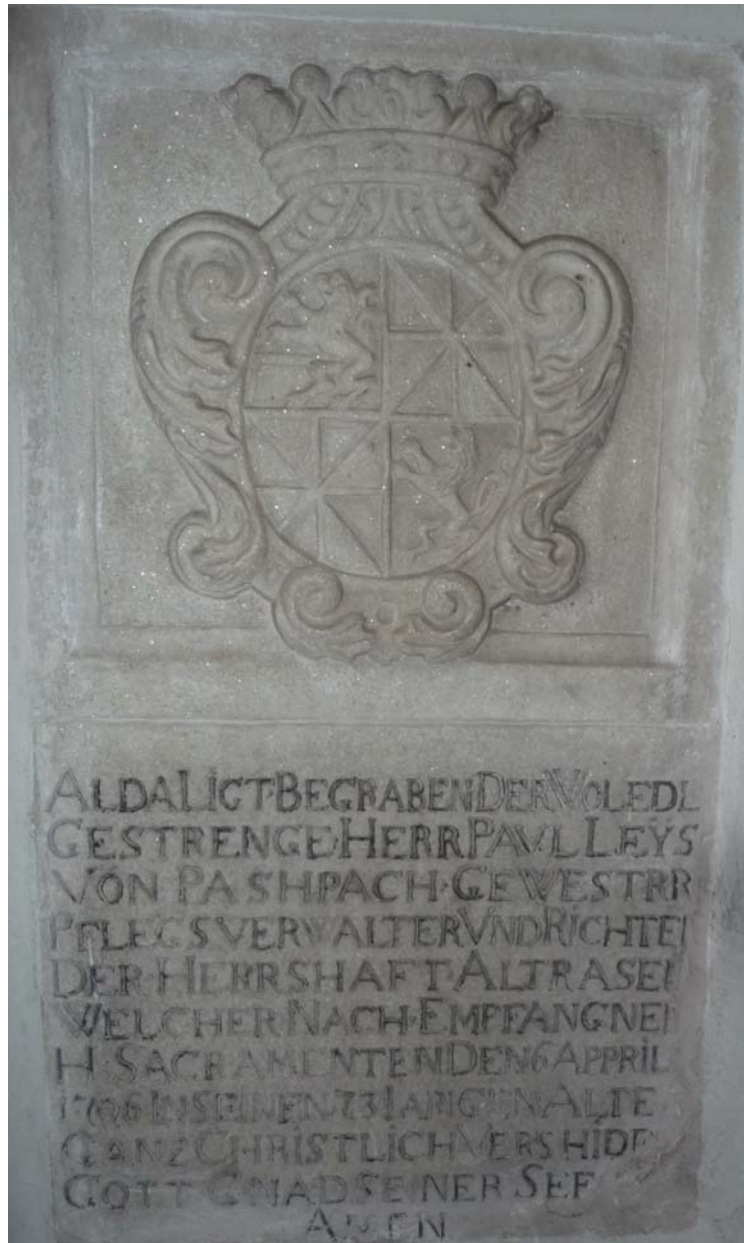 ALDA LIGT·BEGRABEN DER VOLEDL
GESTRENGE·HERR PAVL LEŸS
VON PASHPACH·GEWESTRR
PFLEGSVERWALTER VND RICHTEI
DER·HERRSHAFT·ALTRASEI
WELCHER·NACH·EMPFANGNEI
H·SACRAMENTEN DEN 6 APPRIL
1706 IN SEINEN 73 IARIGEN ALTE
GANZ CHRISTLICH VERSHIDE
GOTT GNAD SEINER SEE
AMEN